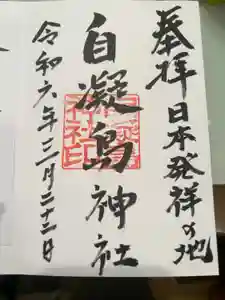 奉拝 日本発祥の地
自凝島神社
令和六年三月二十二日